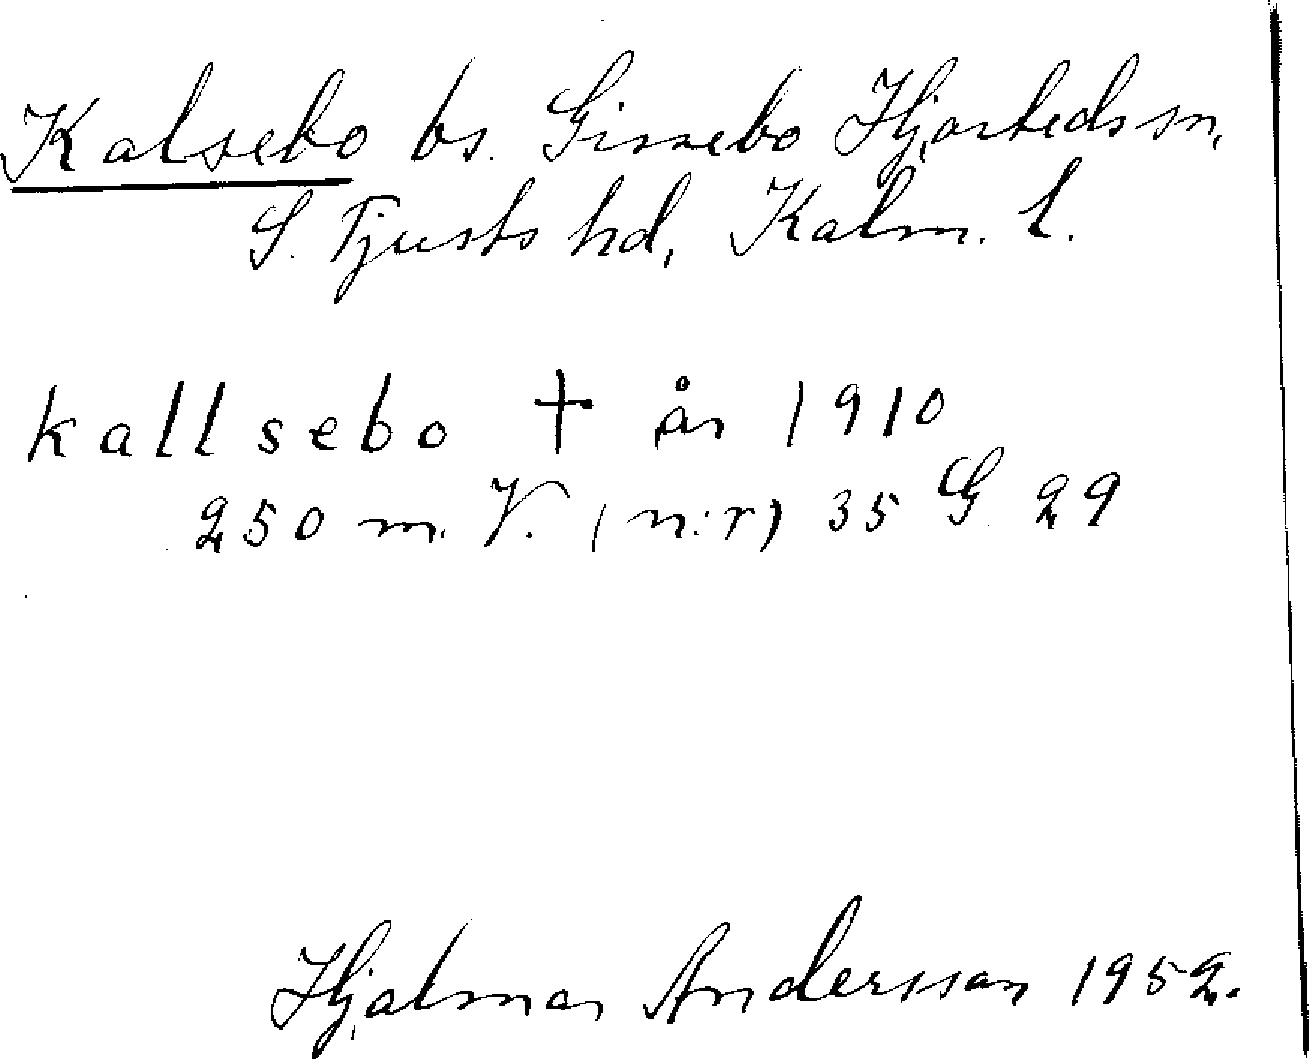 Kalsebo bs. Gissebo Hjorteds sn,
S. Tjusts hd, Kalm. l.
kallsebo † år 1910
250 m. V. (n:r) 35 G 29
Hjalmar Andersson 1952.